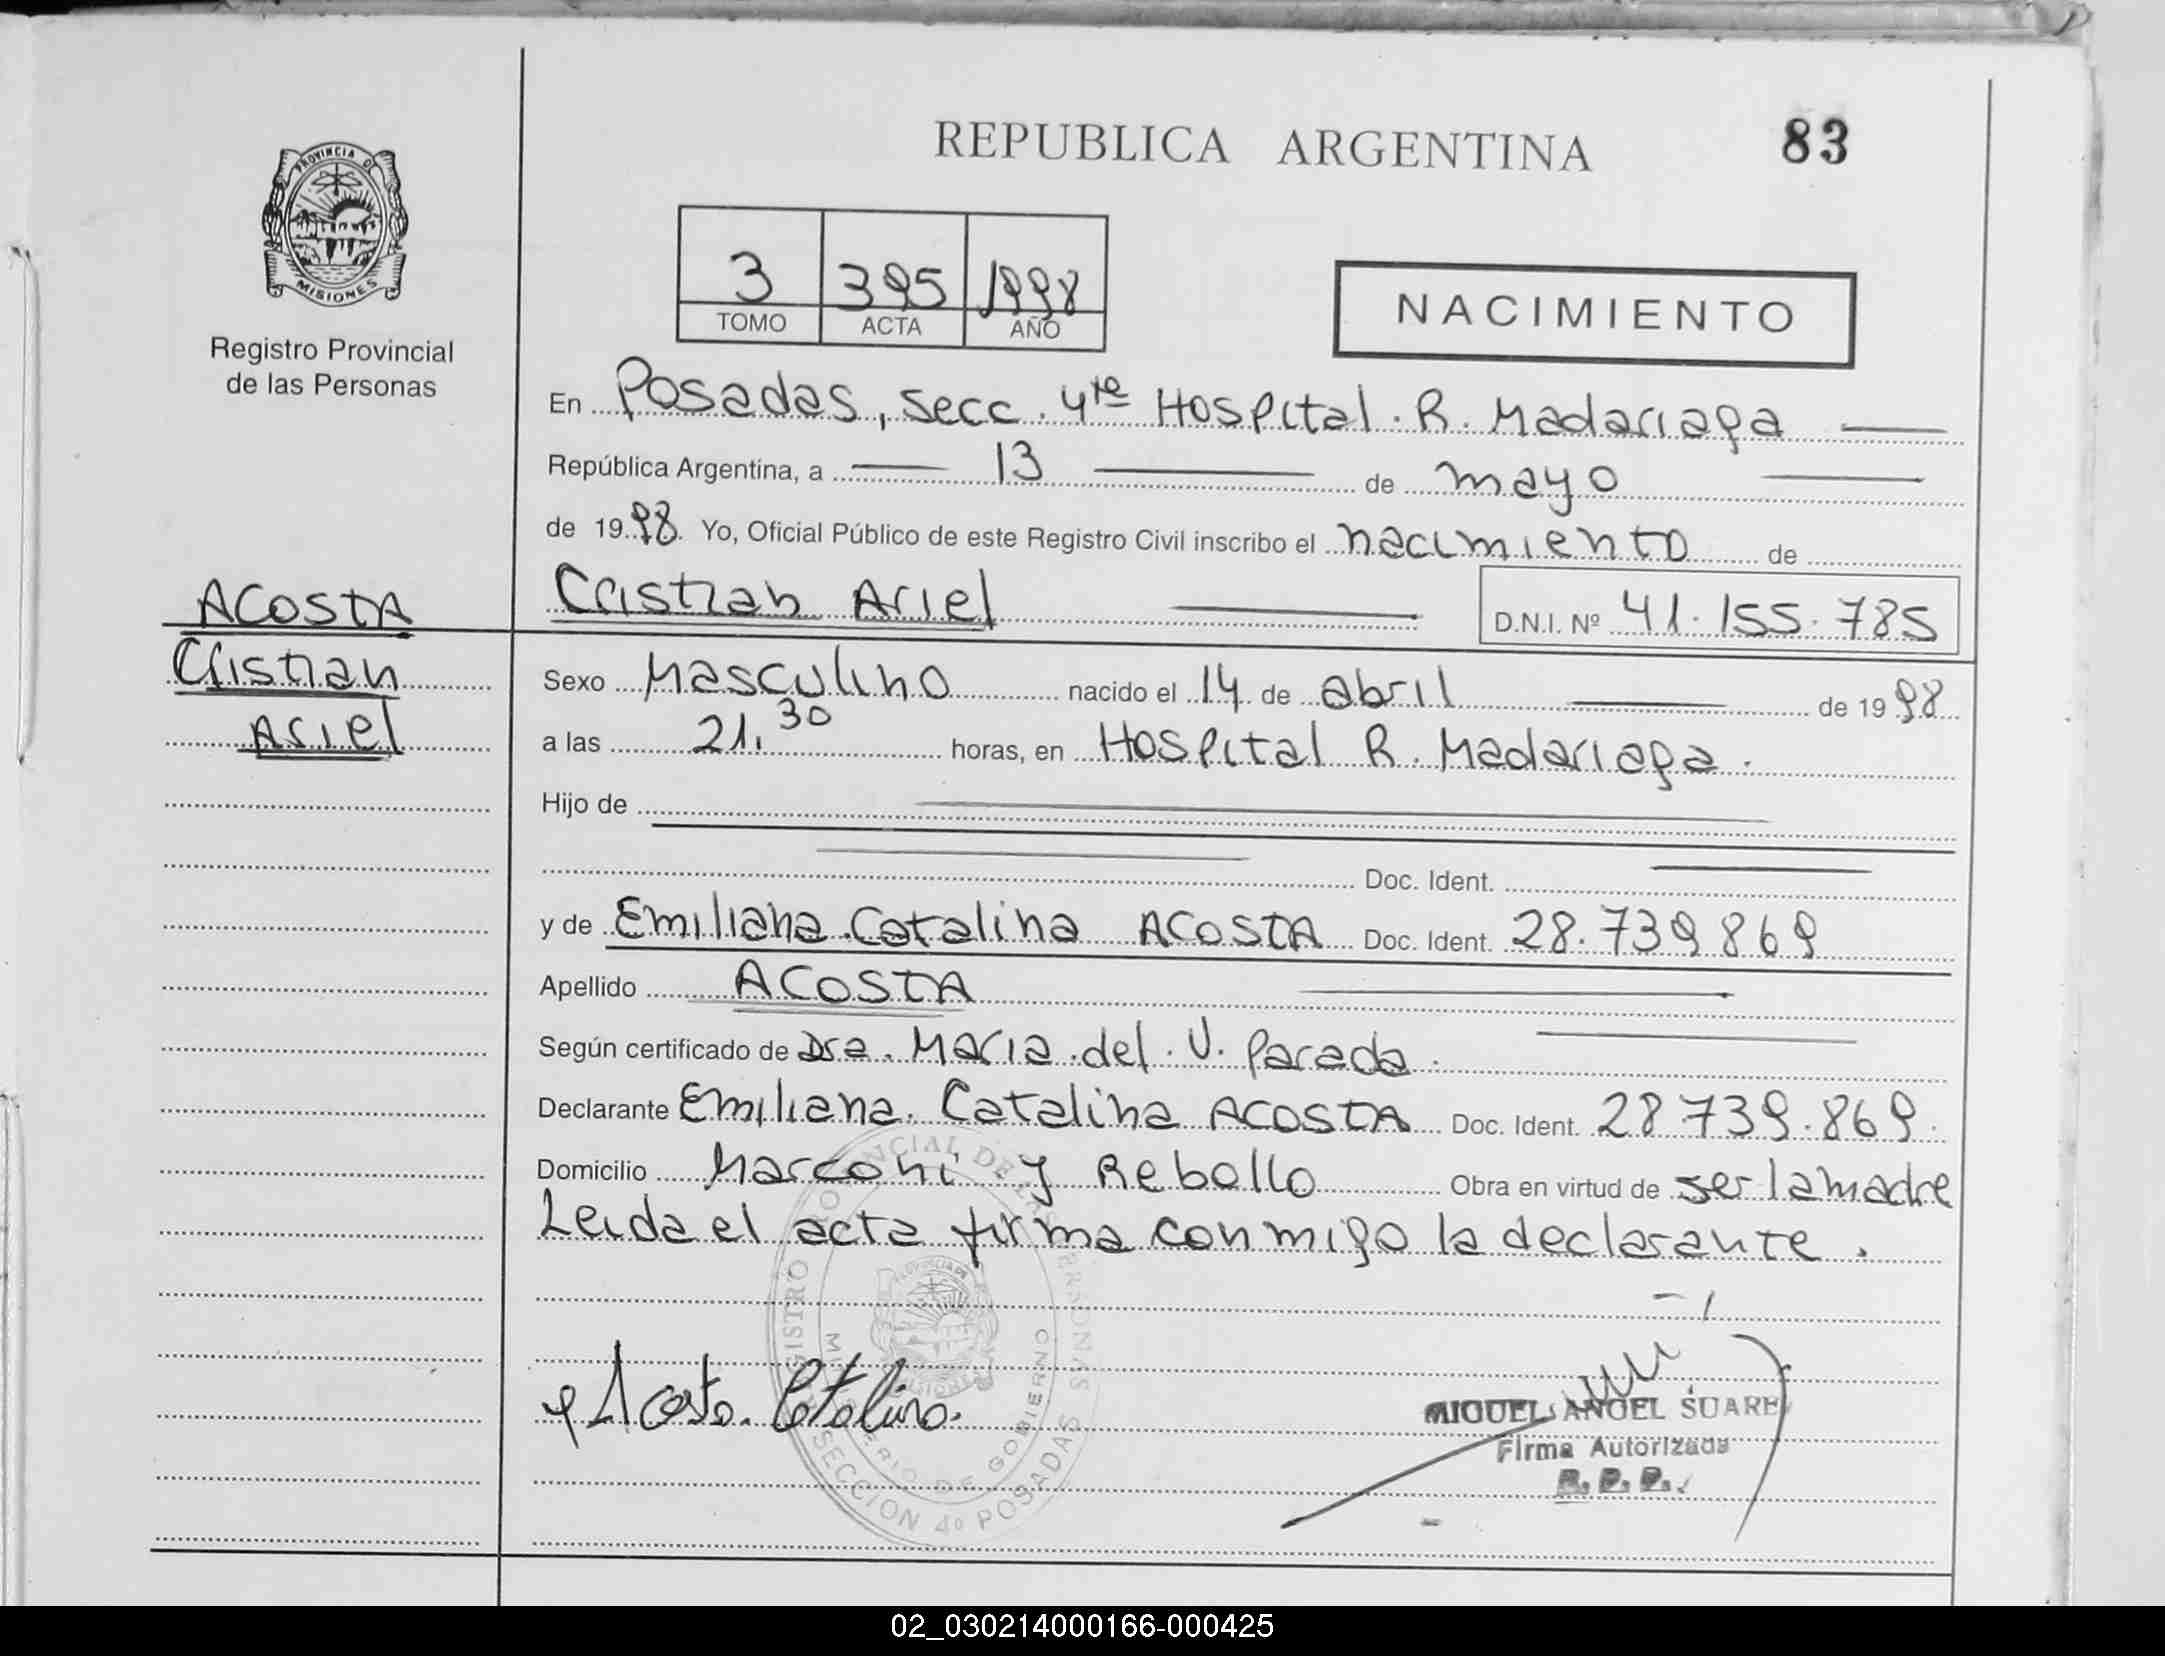 REPUBLICA ARGENTINA
83
PROVINCIA DE
MISIONES
Registro Provincial
de las Personas
3 395 1998
TOMO ACTA AÑO
NACIMIENTO
En Posadas, secc. 4ta Hospital. R. Madariaga
República Argentina, a 13 de mayo
de 1998. Yo, Oficial Público de este Registro Civil inscribo el nacimiento de
Cristian Ariel D.N.I. Nº 41.155.785
ACOSTA
Cristian
Ariel
Sexo Masculino nacido el 14 de abril de 1998
a las 21.30 horas, en Hospital R. Madariaga.
Hijo de
Doc. Ident.
y de Emiliana Catalina ACOSTA Doc. Ident. 28.739869
Apellido ACOSTA
Según certificado de Dra. Maria del V. Parada.
Declarante Emiliana Catalina ACOSTA Doc. Ident. 28739.869.
Domicilio Marconi y Rebollo Obra en virtud de ser la madre
Leida el acta firma conmigo la declarante.
REGISTRO PROVINCIAL DE LAS PERSONAS
MINISTERIO DE GOBIERNO
SECCION 4º POSADAS
Acosta Catalina.
MIGUEL ANGEL SUARE
Firma Autorizada
R. P. P.
02_030214000166-000425